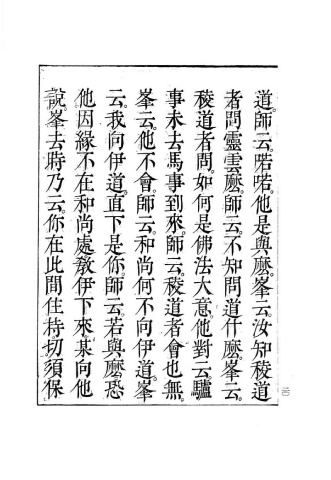 道。師云。喏喏。他是與麽。峯云。汝知稜道
者問靈雲麽。師云。不知問道什麽。峯云。
稜道者問。如何是佛法大意。他對云。驢
事未去馬事到來。師云。稜道者會也無。
峯云。他不會。師云。和尚何不向伊道。峯
云。我向伊道。直下是你。師云。若與麽恐
他因緣不在和尚處。敎伊下來。某向他
說。峯去時乃云。你在此間住持。切須保